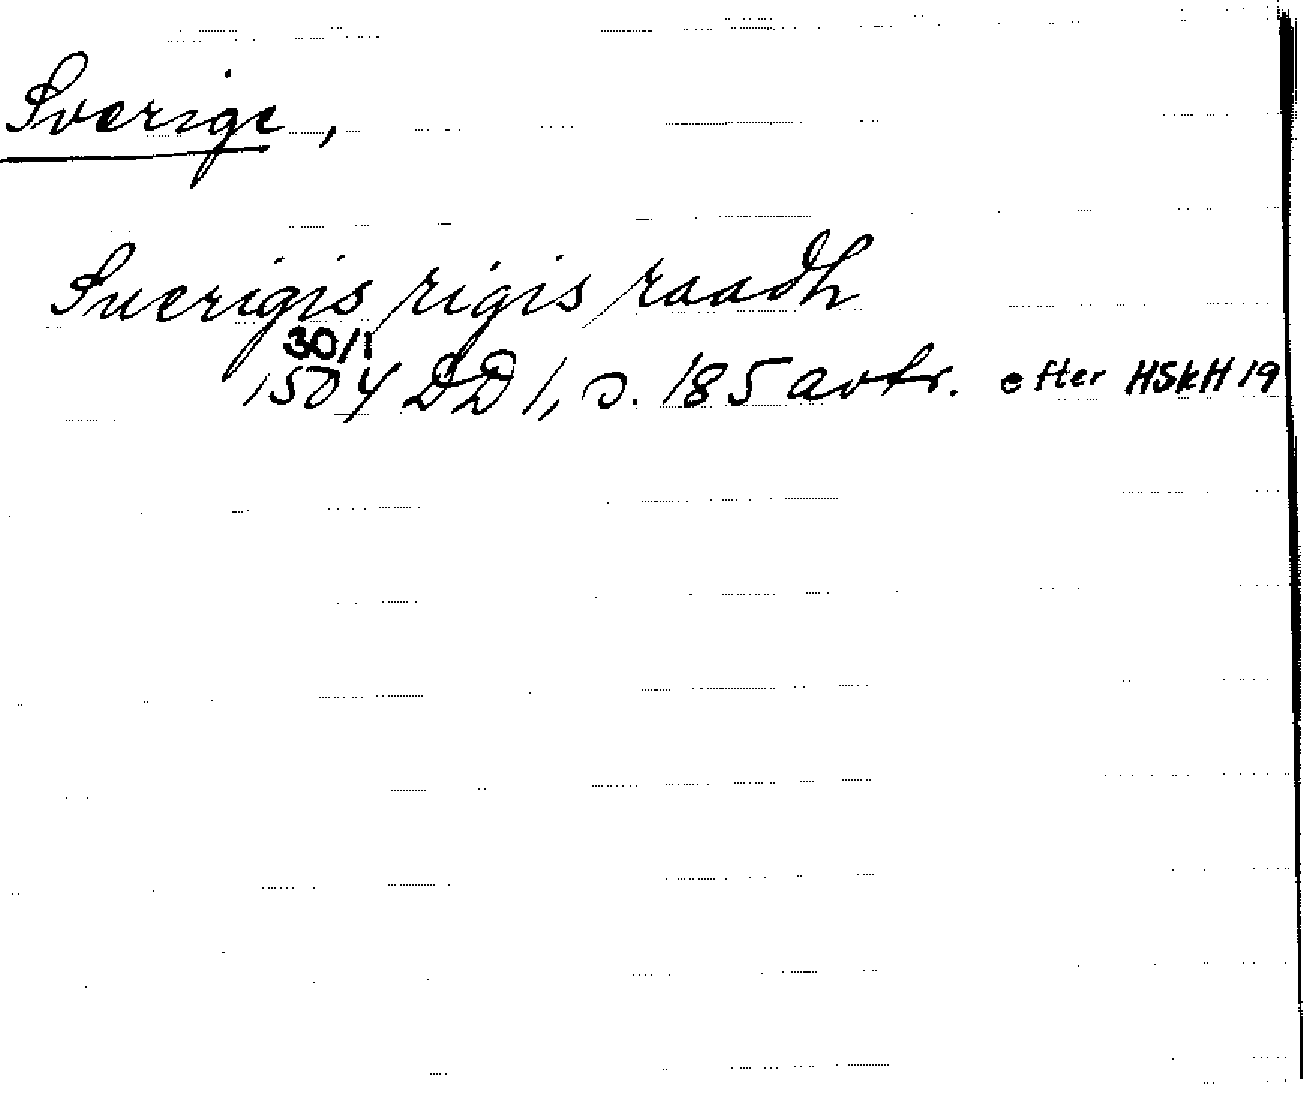 Sverige,
Suerigis rigis raadh
30/1
1504 DD 1, s. 185 avtr. efter HSkH 19